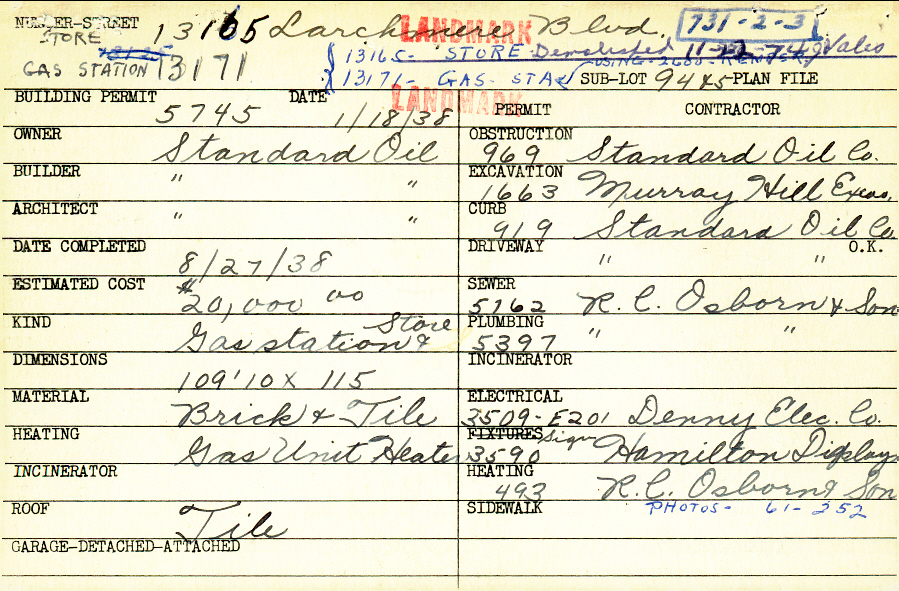 NUMBER-STREET 13165 Larchmere Blvd. 731-2-3
LANDMARK
STORE
13165- STORE Demolished 11-22-74
GAS STATION 13171
13171- GAS STA SUB-LOT 94+5 PLAN FILE
LANDMARK
BUILDING PERMIT 5745 DATE 1/18/38
PERMIT CONTRACTOR
OWNER Standard Oil
OBSTRUCTION 969 Standard Oil Co.
BUILDER " "
EXCAVATION 1663 Murray Hill Excav.
ARCHITECT " "
CURB 919 Standard Oil Co.
DATE COMPLETED 8/27/38
DRIVEWAY " " O.K.
ESTIMATED COST $20,000 00
SEWER 5162 R. C. Osborn & Son
KIND Gas station & Store
PLUMBING 5397 " "
DIMENSIONS 109'10 X 115
INCINERATOR
MATERIAL Brick & Tile
ELECTRICAL 3509- E201 Denny Elec. Co.
HEATING Gas Unit Heater
FIXTURES Sign 3590 Hamilton Displays
INCINERATOR
HEATING 493 R. C. Osborn & Son
ROOF Tile
SIDEWALK PHOTOS- 61-252
GARAGE-DETACHED-ATTACHED